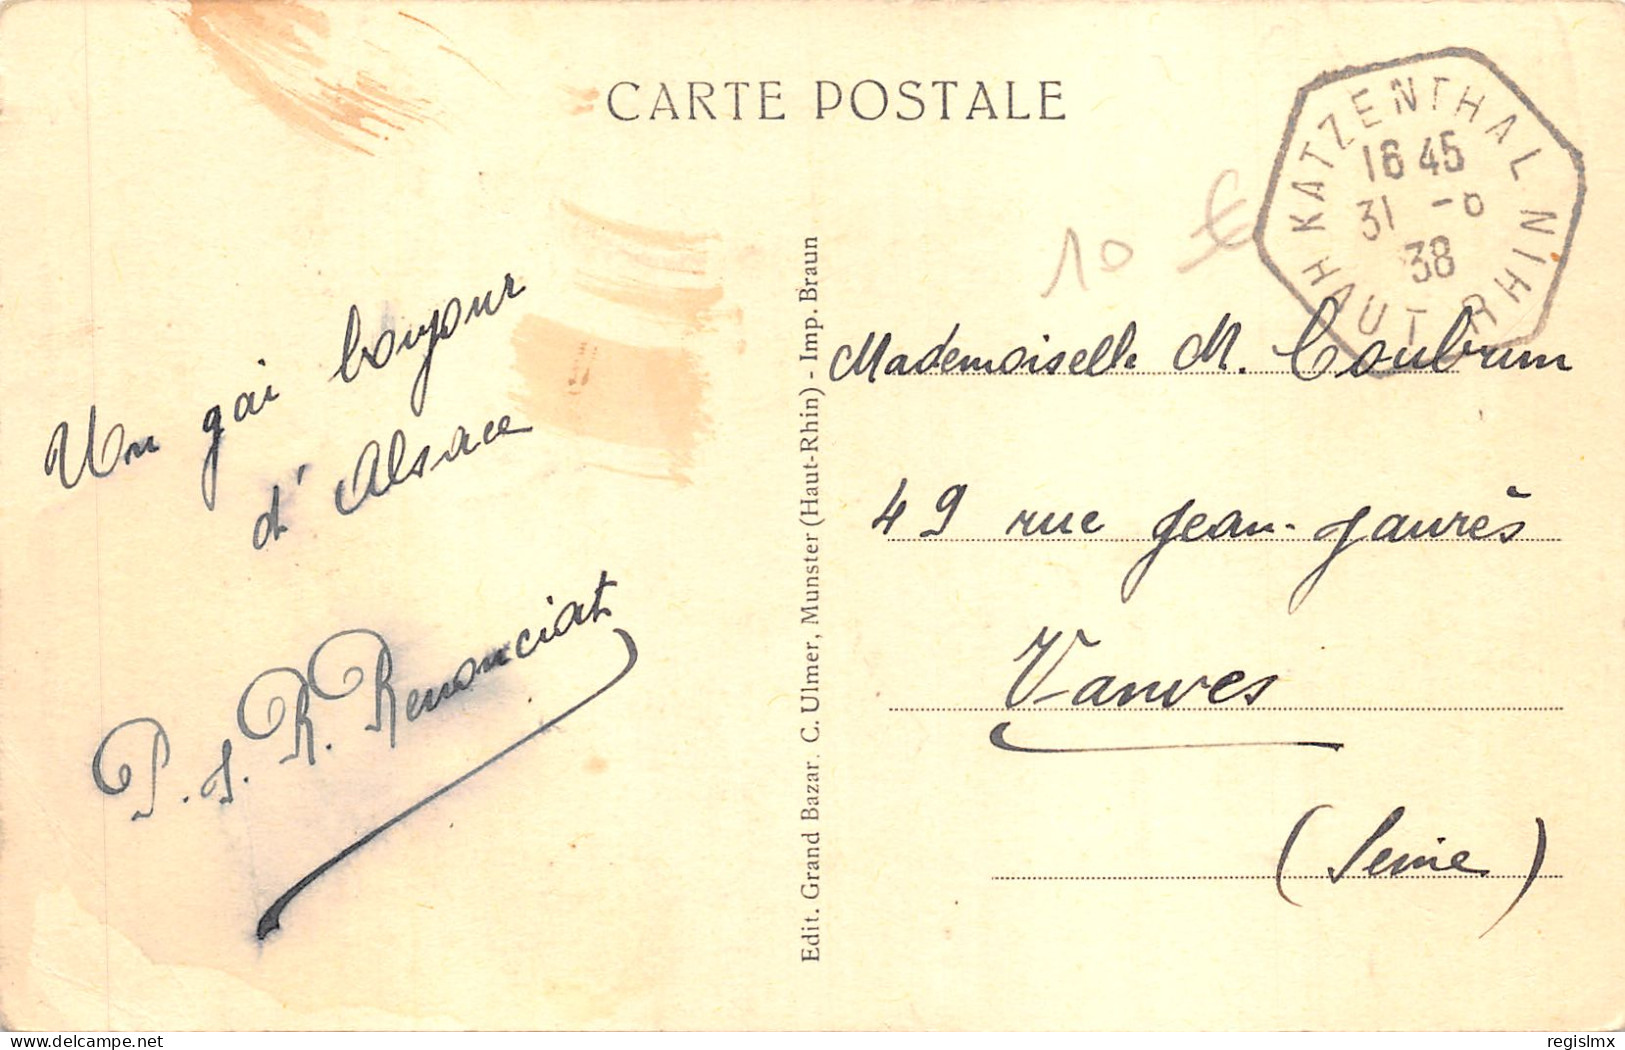 CARTE POSTALE
KATZENTHAL NIHR TUAH
16 45
31 -8
38
10 €
Un gai bonjour
d'Alsace
P. J. R. Renonciat
Edit. Grand Bazar. C. Ulmer, Munster (Haut-Rhin) - Imp. Braun
Mademoiselle M. Coubrun
49 rue Jean-Jaurès
Vanves
(Seine)
delcampe.net
regislmx